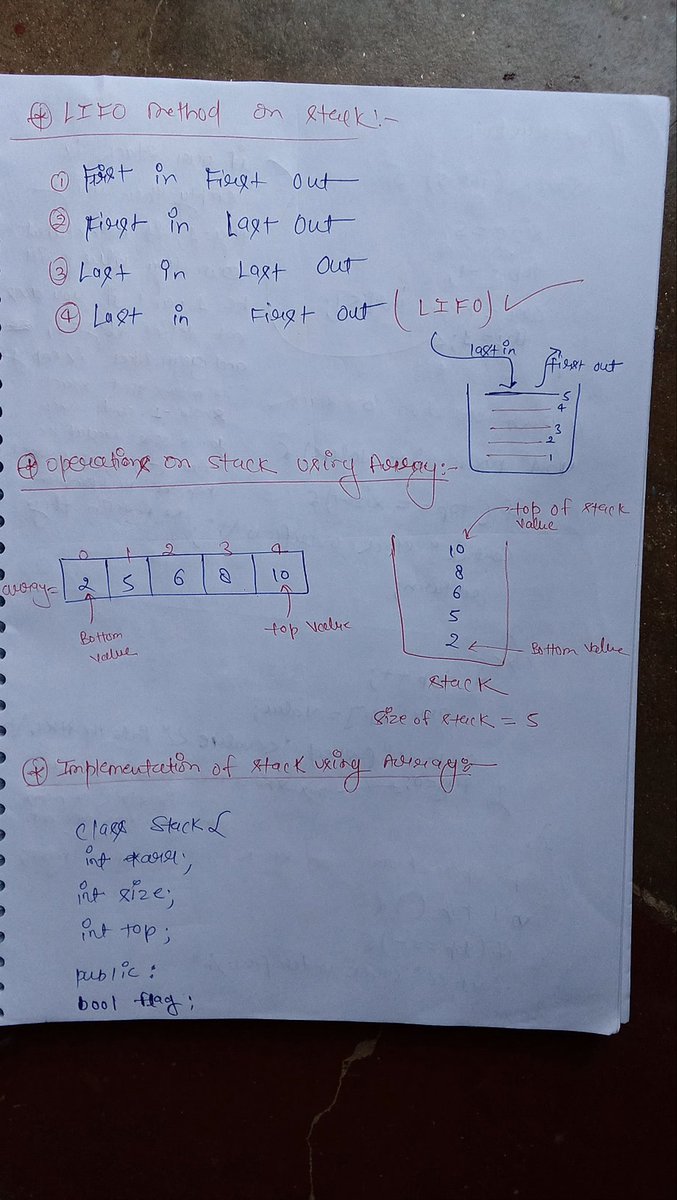 * LIFO method on stack:-
① First in First out
② First in Last out
③ Last in Last out
④ Last in First out (LIFO) ✓
last in
first out
5
4
3
2
1
* Operations on stack using Array:-
0 1 2 3 4
array= 2 5 6 8 10
Bottom value
top value
top of stack value
10
8
6
5
2
Bottom value
stack
size of stack = 5
* Implementation of stack using Array:-
class Stack {
int *arr;
int size;
int top;
public:
bool flag;